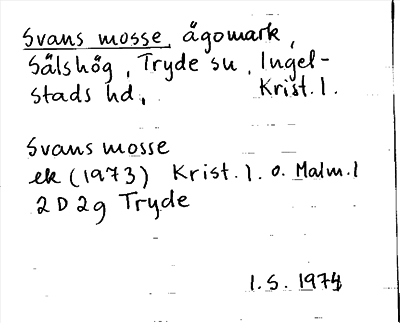 Svans mosse, ägomark,
Sälshög, Tryde sn, Ingel-
stads hd, Krist. l.
Svans mosse
ek (1973) Krist. l. o. Malm. l
2D2g Tryde
I.S. 1974